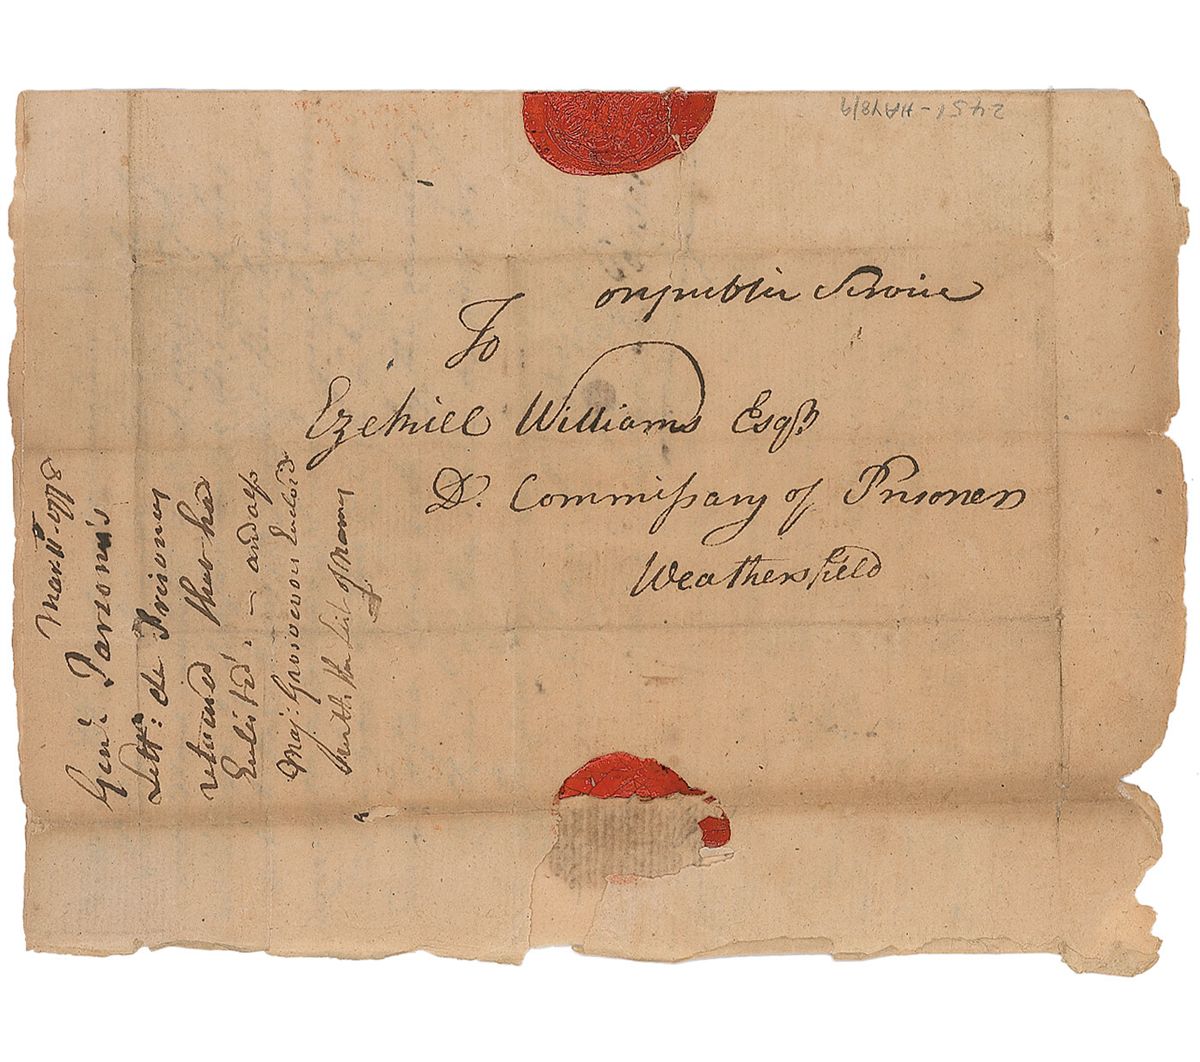 on public Service
To
Ezekiell Williams Esqr
D. Commissary of Prisoners
Weathersfield
March 1778
Genl. Parsons's
Lettr: de Prisoners
returned thro had
Enlisted. — and as
Maj: Grosvenor
of
2451-HAY8/9